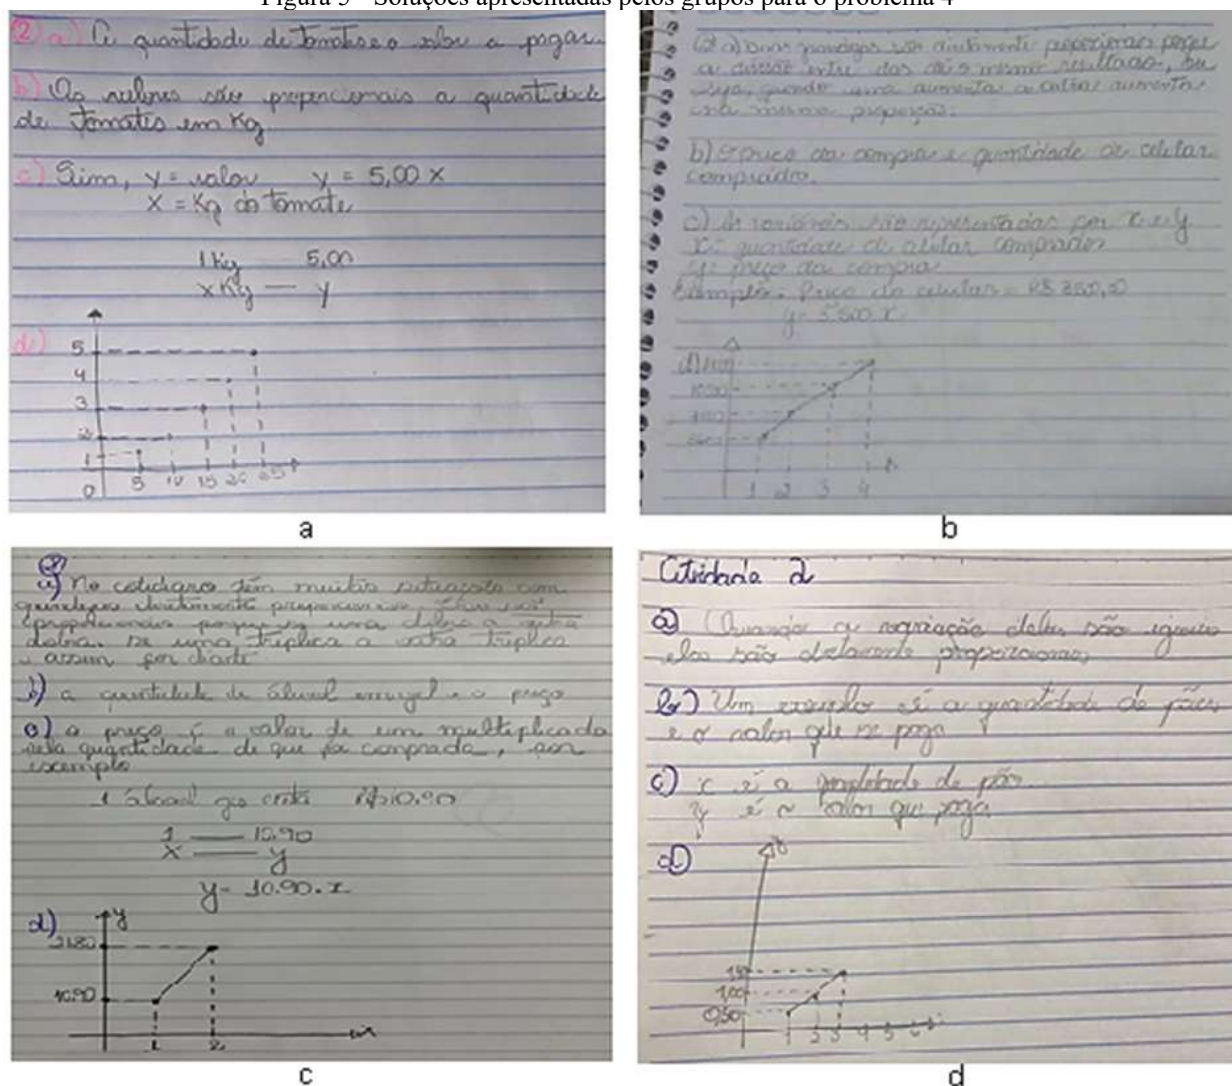 Figura 5 - Soluções apresentadas pelos grupos para o problema 4
2) a) A quantidade de tomates e o valor a pagar.
b) Os valores são proporcionais a quantidade
de tomates em Kg
c) Sim, y = valor y = 5,00 x
x = Kg do tomate
1 Kg — 5,00
x Kg — y
d)
5
4
3
2
1
0 5 10 15 20 25
a
a) Duas grandezas são diretamente proporcionais porque
a divisão entre das o mesmo resultado, ou
seja, quando uma aumenta a outra aumenta
na mesma proporção.
b) O preço da compra e quantidade de celular
comprados.
c) As variáveis são representadas por x e y
x = quantidade de celular comprados
y = preço da compra
Exemplo. Preço do celular = R$
y =
d)
1 2 3 4
b
a) No cotidiano tem muitas situações com
grandezas diretamente
proporcionais porque se uma dobra a outra
dobra, se uma triplica a outra triplica
e assim por diante
b) a quantidade de e o preço
c) o preço é o valor de um multiplicado
pela quantidade de que foi comprada, por
exemplo
1 que custa R$10.90
1 — 10.90
x — y
y = 10.90.x
d) y
21.80
10.90
1 2 x
c
Atividade 2
a) Quando a variação deltas são iguais
elas são diretamente proporcionais
b) Um exemplo é a quantidade de pães
e o valor que se paga
c) x é a quantidade de pão
y é o valor que paga
d) y
1,50
1,00
0,50
1 2 3 4 5 6
d